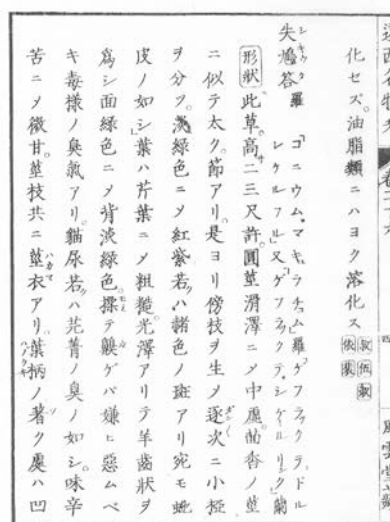 化セズ。油脂類ニハヨク溶化ス
失鳩答 シキウタ 羅「コニウム、マキュラチュム」羅「ゲフラックテ、ドルレケルフル」又「ゲフラクテ、シケールリンク」蘭
形狀 此草。高サ二三尺許。圓莖滑澤ニメ中虛。茴香ノ莖
ニ似テ太ク。節アリ。是ヨリ傍枝ヲ生メ逐次ニ小椏
ヲ分ツ。淡綠色ニメ紅紫若クハ諸色ノ斑アリ宛モ蛇
皮ノ如シ葉ハ芹葉ニメ粗糙。光澤アリテ羊齒狀ヲ
爲シ面綠色ニメ背淡綠色。揉テ齅ゲバ嫌ヒ惡ムベ
キ毒樣ノ臭氣アリ。猫尿若クハ芫菁ノ臭ノ如シ。味辛
苦ニメ微甘。莖枝共ニ莖衣アリ。葉柄ノ著ク處ハ凹